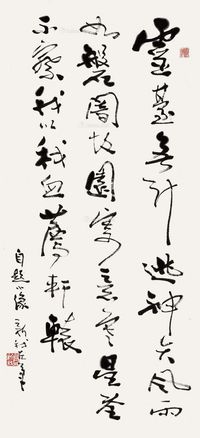 靈臺無計逃神矢風雨
如磐闇故園寄意寒星荃
不察我以我血薦軒轅
自題小像